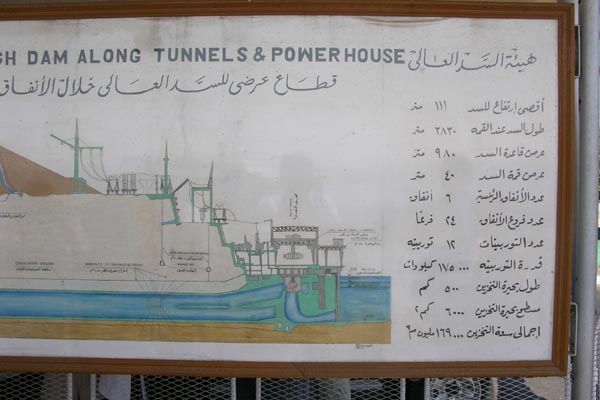 GH DAM ALONG TUNNELS & POWER HOUSE هيئة السد العالى
قطاع عرضى للسد العالى خلال الأنفاق
أقصى إرتفاع للسد ١١١ متر
طول السد عند القمه ٣٨٣٠ متر
عرض قاعدة السد ٩٨٠ متر
عرض قمة السد ٤٠ متر
عدد الأنفاق الرئيسية ٦ أنفاق
عدد فروع الأنفاق ٢٤ فرعًا
عدد التوربينات ١٢ توربينه
قدرة التوربينه ١٧٥٠٠٠ كيلووات
طول بحيرة التخزين ٥٠٠ كم
مسطح بحيرة التخزين ٦٠٠٠ كم٢
إجمالى سعة التخزين ١٦٩٠٠٠ مليون م٣